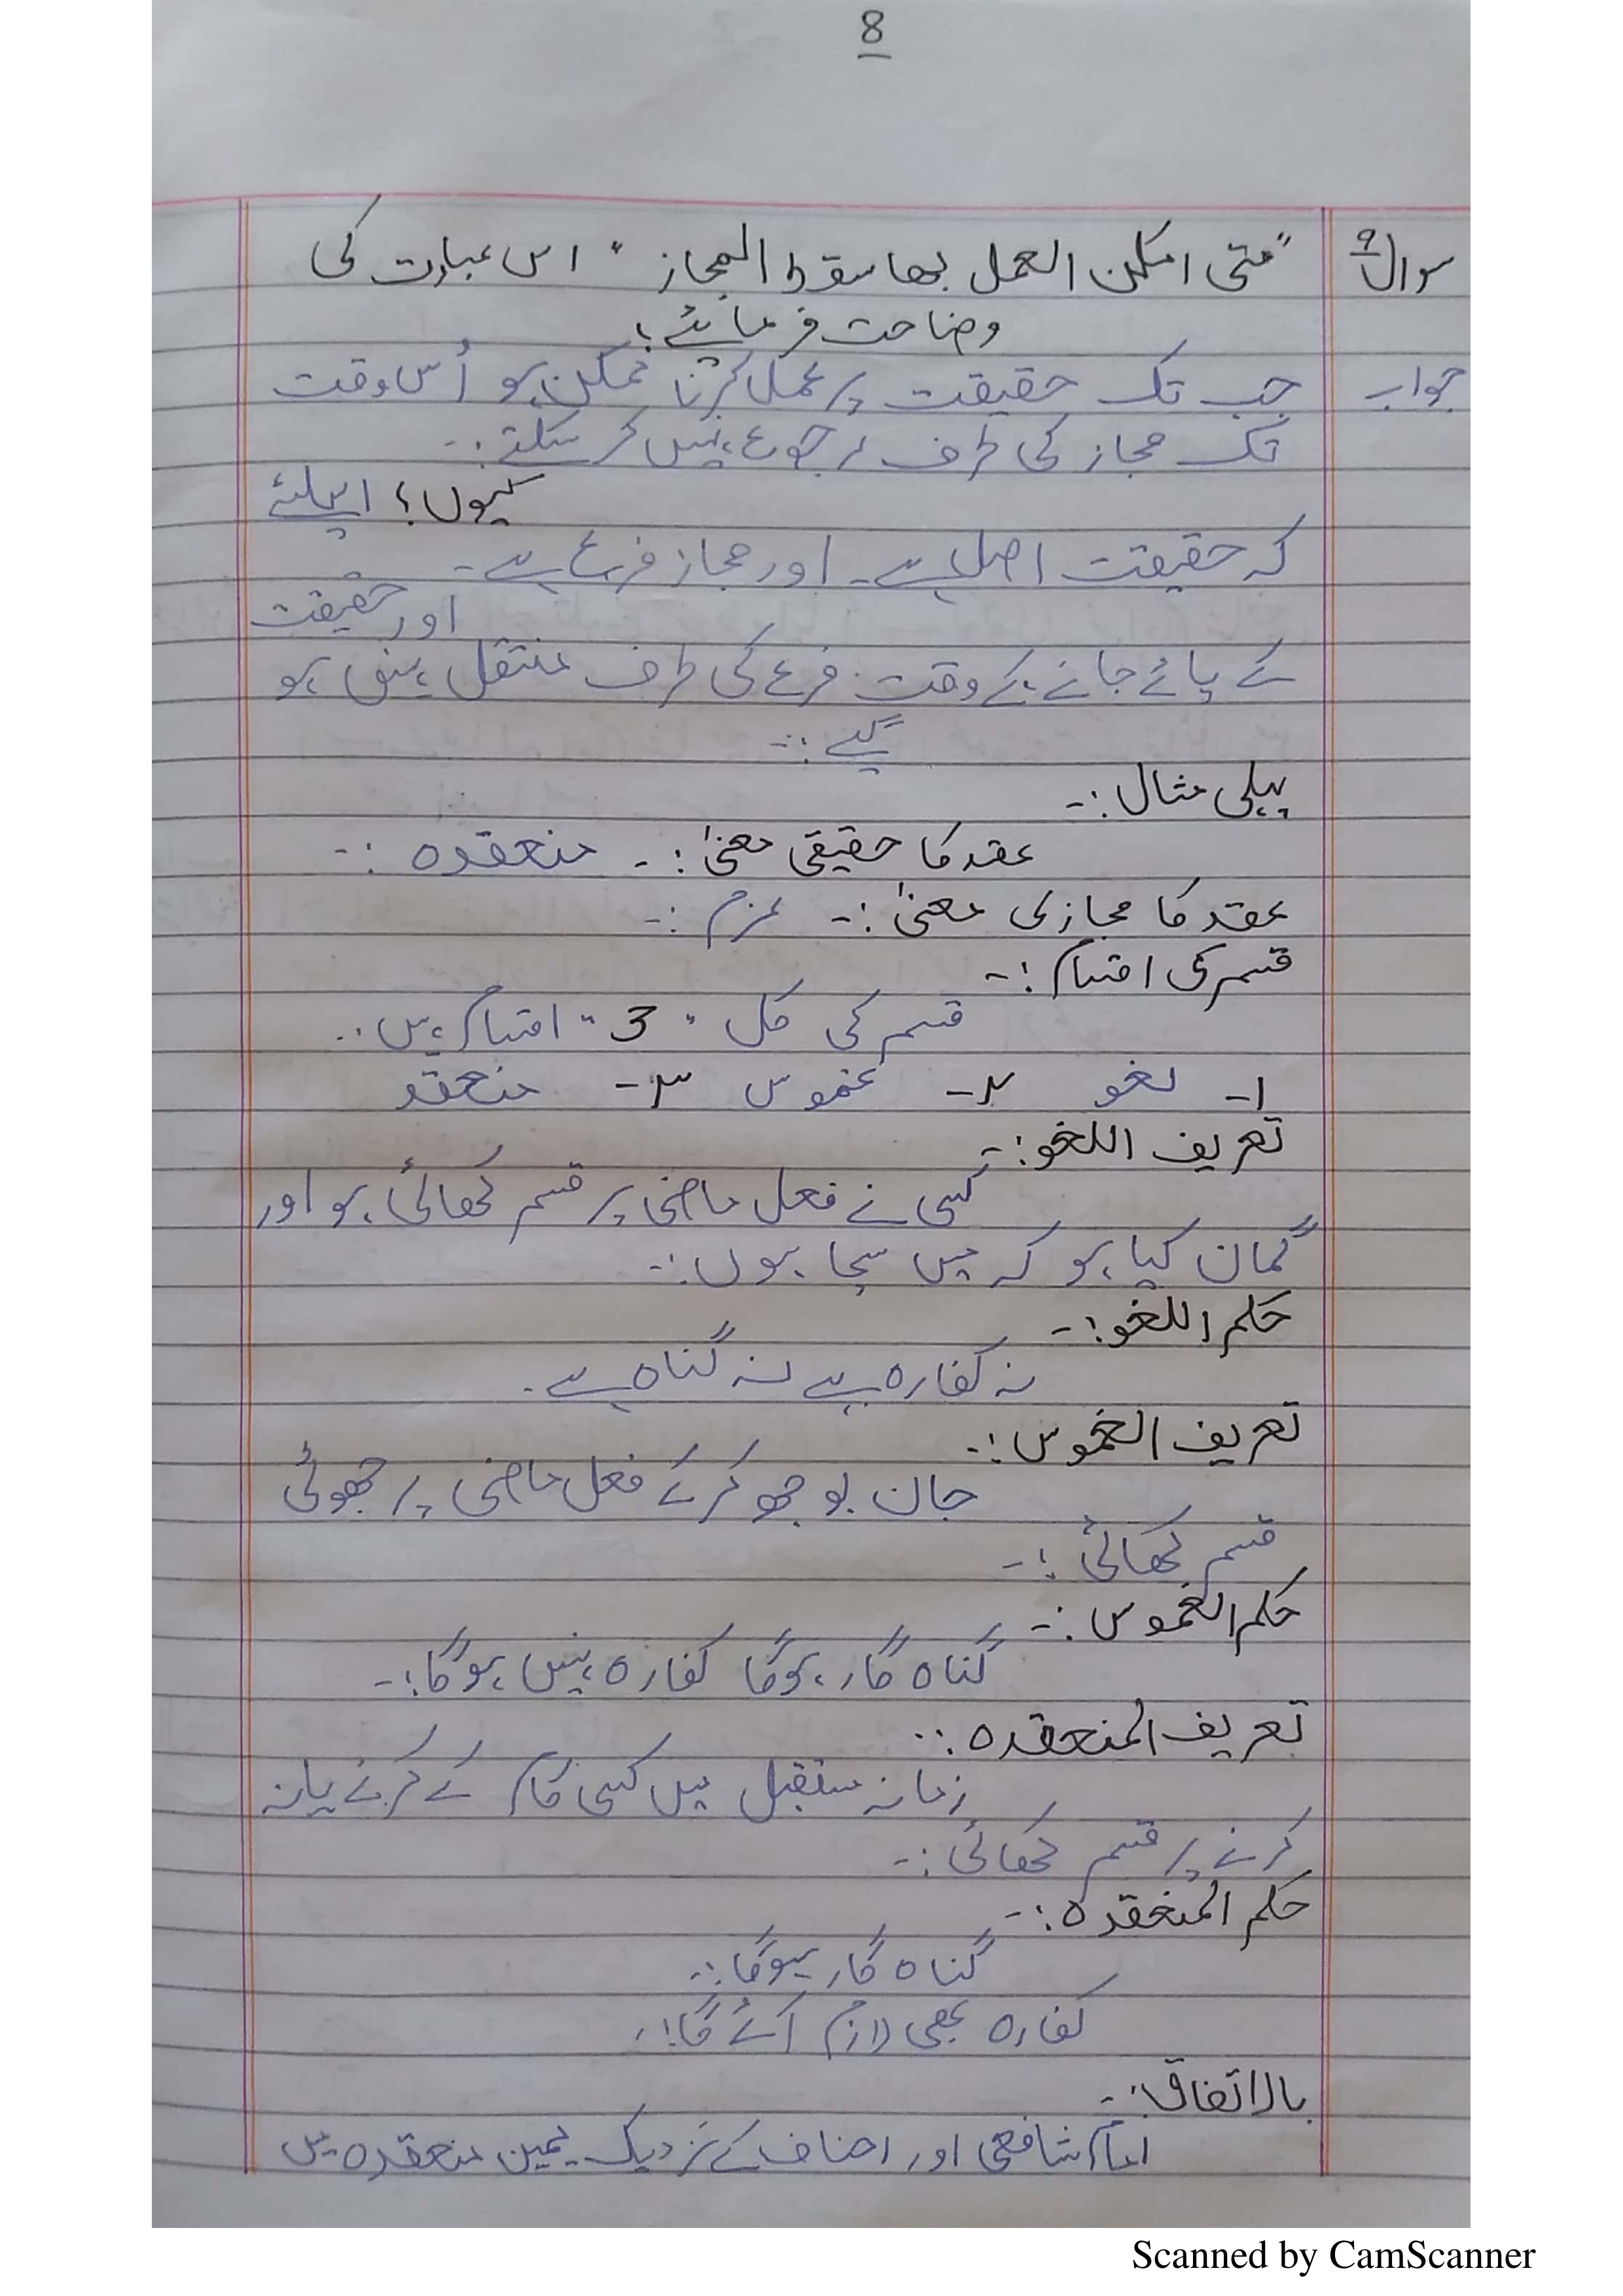 8
سوال ۹ "متی امکن العمل بھا سقط المجاز" اس عبارت کی
وضاحت فرمائے؛
جواب جب تک حقیقت پر عمل کرنا ممکن ہو اُس وقت
تک مجاز کی طرف رجوع نہیں کر سکتے:-
کیوں؟ اسلئے
کہ حقیقت اصل ہے۔ اور مجاز فرع ہے۔
اور حقیقت
کے پائے جانے کے وقت فرع کی طرف منتقل نہیں ہو
گے:-
پہلی مثال:-
عقد کا حقیقی معنیٰ:- منعقدہ:-
عقد کا مجازی معنیٰ:- عزم:-
قسم کی اقسام:-
قسم کی کل "3" اقسام ہیں:-
۱- لغو ۲- غموس ۳- منعقد
تعریف اللغو:-
کسی نے فعل ماضی پر قسم کھائی ہو اور
گمان کیا ہو کہ میں سچا ہوں:-
حکم اللغو:-
نہ کفارہ ہے نہ گناہ ہے۔
تعریف الغموس:-
جان بوجھ کر کے فعل ماضی پر جھوٹی
قسم کھائی:-
حکم الغموس:-
گناہ گار ہوگا کفارہ نہیں ہوگا:-
تعریف المنعقدہ:-
زمانہ مستقبل میں کسی کام کے کرنے یا نہ
کرنے پر قسم کھائی:-
حکم المنعقدہ:-
گناہ گار ہوگا:-
کفارہ بھی لازم آئے گا:-
بالاتفاق:-
امام شافعی اور احناف کے نزدیک یمین منعقدہ میں
Scanned by CamScanner